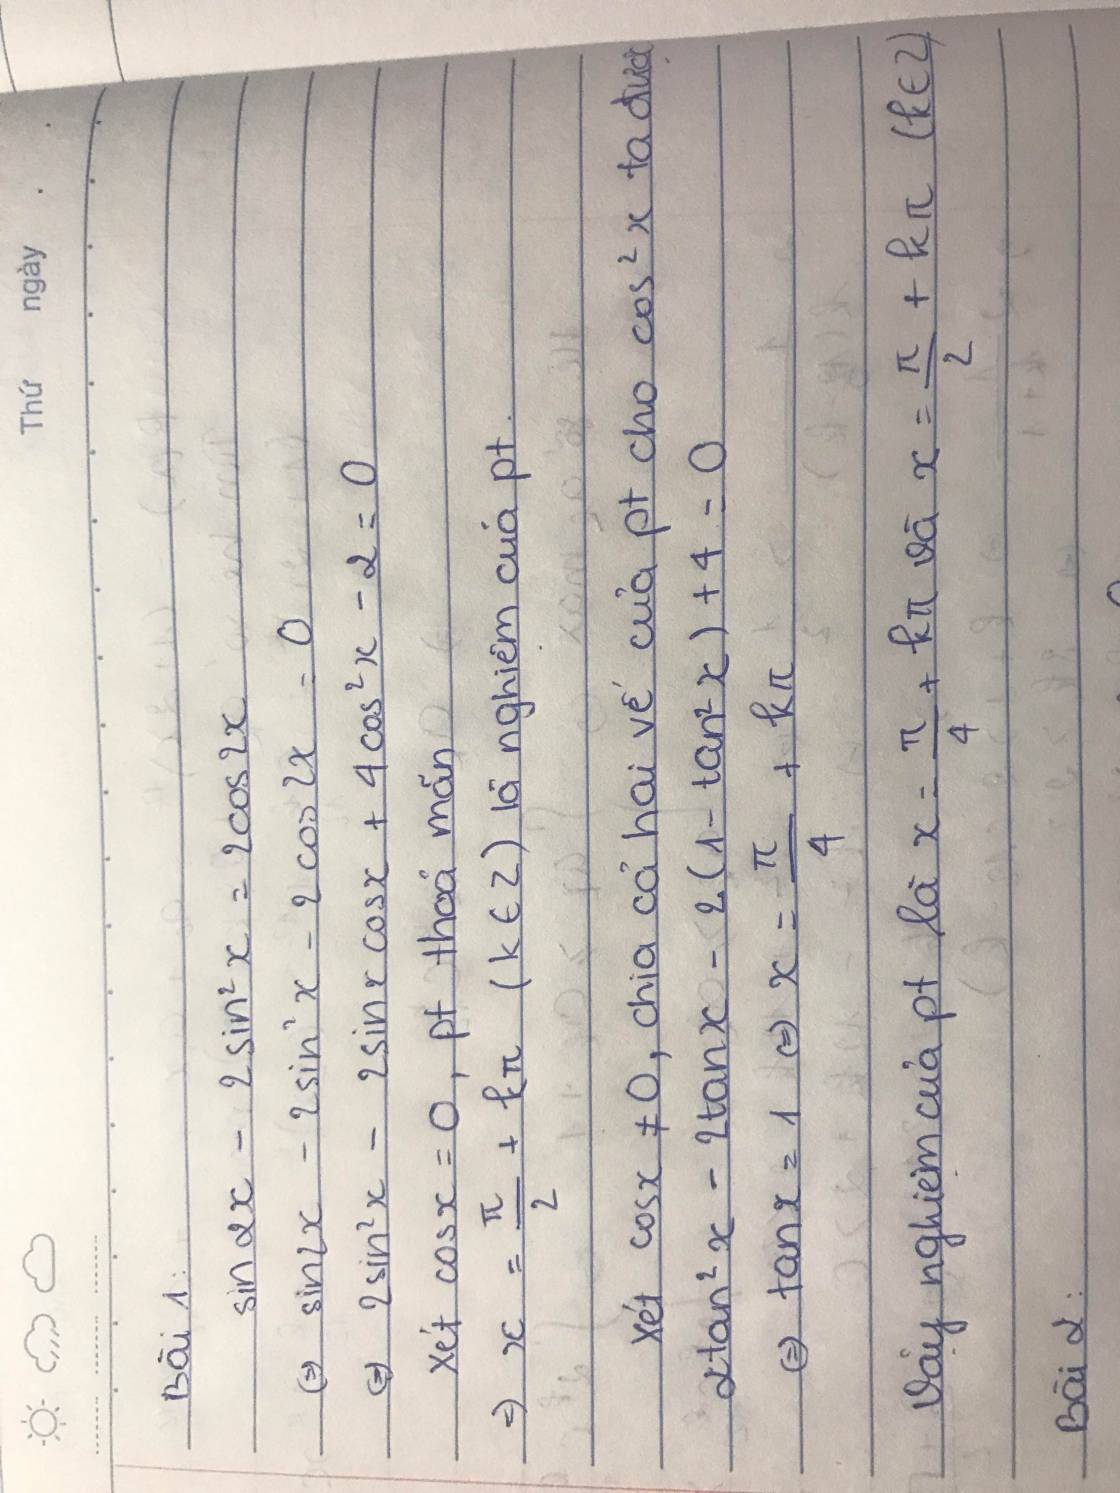 Thứ ngày
Bài 1:
sin2x - 2sin²x = 2cos2x
⇔ sin2x - 2sin²x - 2cos2x = 0
⇔ 2sin²x - 2sinxcosx + 4cos²x - 2 = 0
Xét cosx = 0, pt thoả mãn
⇒ x = π/2 + kπ (k ∈ Z) là nghiệm của pt.
Xét cosx ≠ 0, chia cả hai vế của pt cho cos²x ta được
2tan²x - 2tanx - 2(1 - tan²x) + 4 = 0
⇔ tanx = 1 ⇔ x = π/4 + kπ
Vậy nghiệm của pt là x = π/4 + kπ và x = π/2 + kπ (k ∈ Z)
Bài 2: